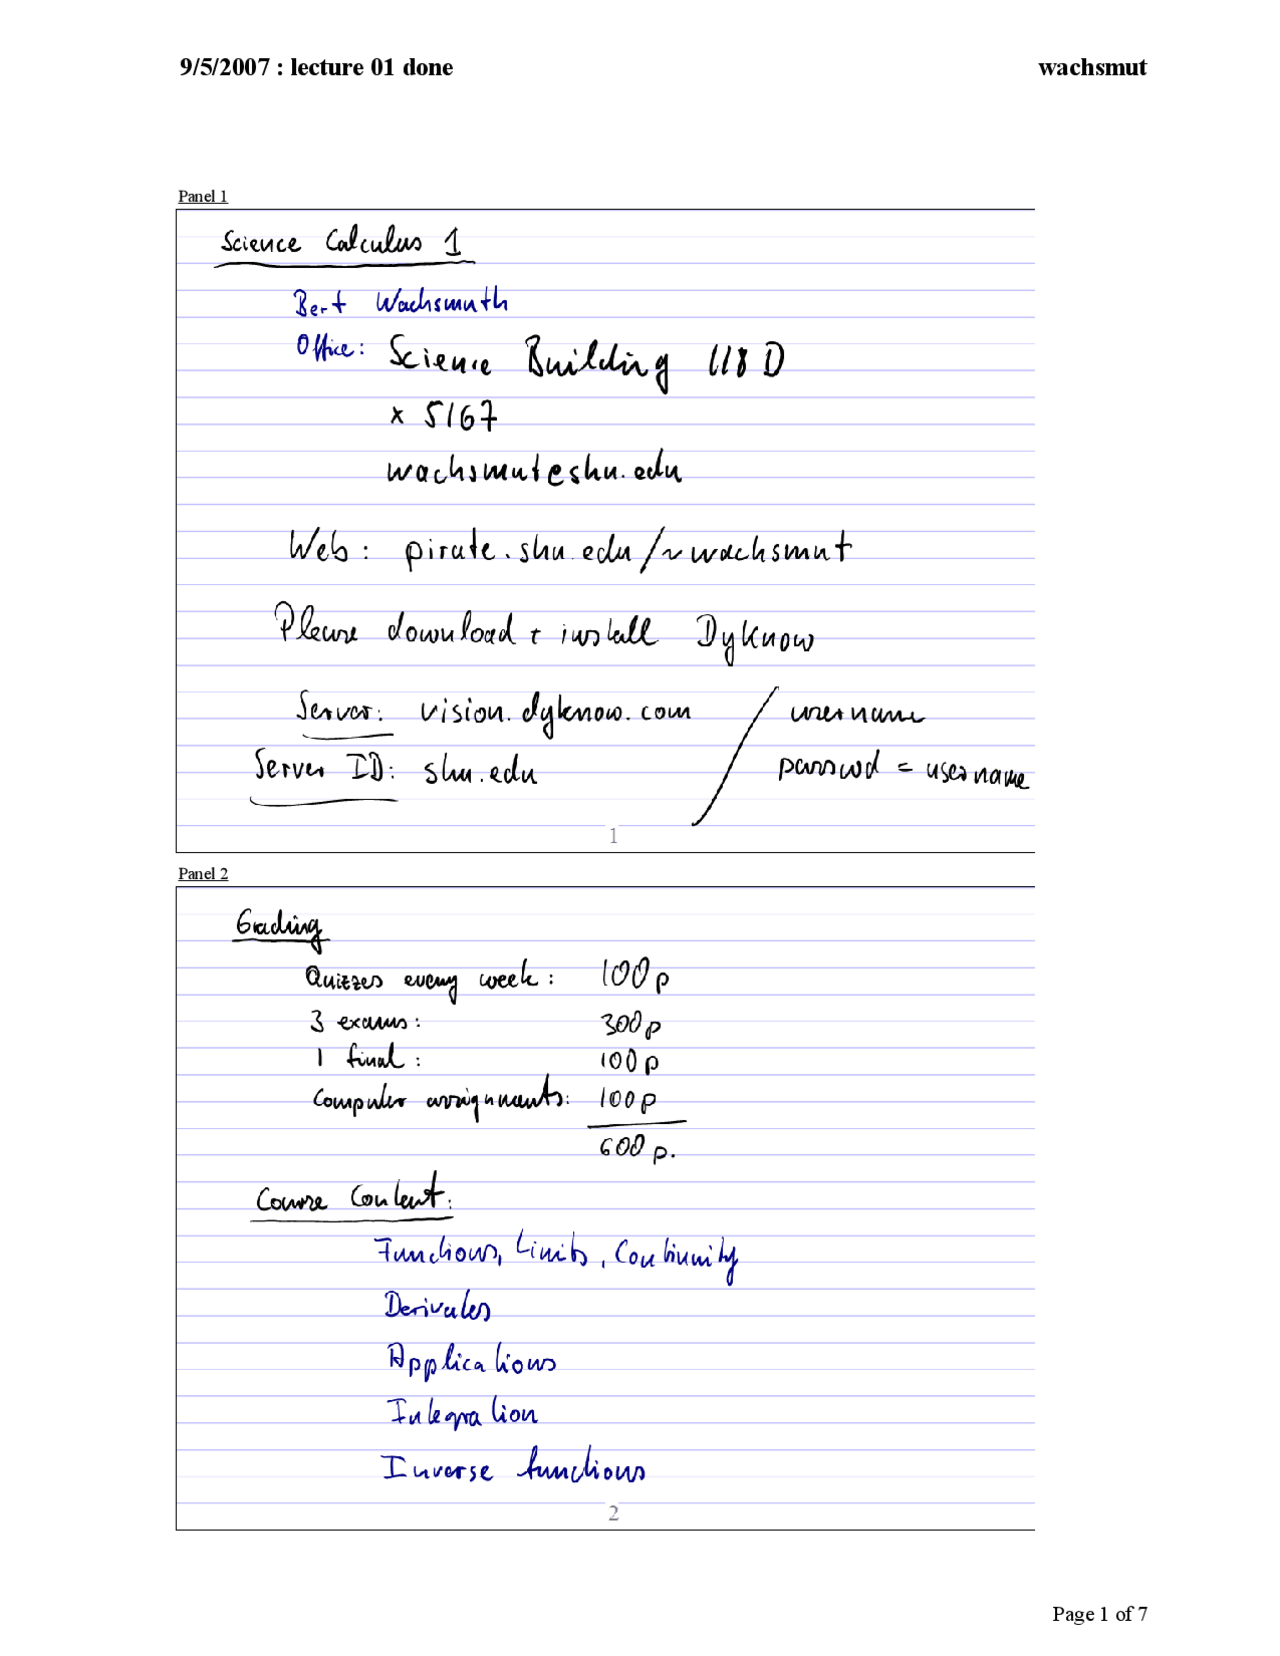 9/5/2007 : lecture 01 done wachsmut
Panel 1
Science Calculus 1
Bert Wachsmuth
Office: Science Building 118 D
x 5167
wachsmut@shu.edu
Web: pirate.shu.edu/~wachsmut
Please download + install DyKnow
Server: vision.dyknow.com / username
Server ID: shu.edu passwd = username
1
Panel 2
Grading
Quizzes every week: 100p
3 exams: 300p
1 final: 100p
Computer assignments: 100p
600p.
Course Content:
Functions, Limits, Continuity
Derivates
Applications
Integration
Inverse functions
2
Page 1 of 7